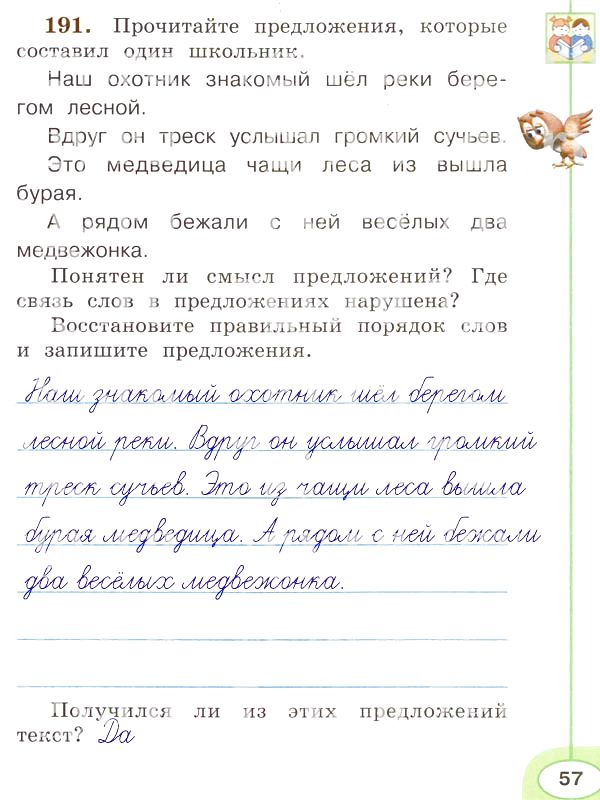 191. Прочитайте предложения, которые
составил один школьник.
Наш охотник знакомый шёл реки бере-
гом лесной.
Вдруг он треск услышал громкий сучьев.
Это медведица чащи леса из вышла
бурая.
А рядом бежали с ней весёлых два
медвежонка.
Понятен ли смысл предложений? Где
связь слов в предложениях нарушена?
Восстановите правильный порядок слов
и запишите предложения.
Наш знакомый охотник шёл берегом
лесной реки. Вдруг он услышал громкий
треск сучьев. Это из чащи леса вышла
бурая медведица. А рядом с ней бежали
два весёлых медвежонка.
Получился ли из этих предложений
текст? Да
57